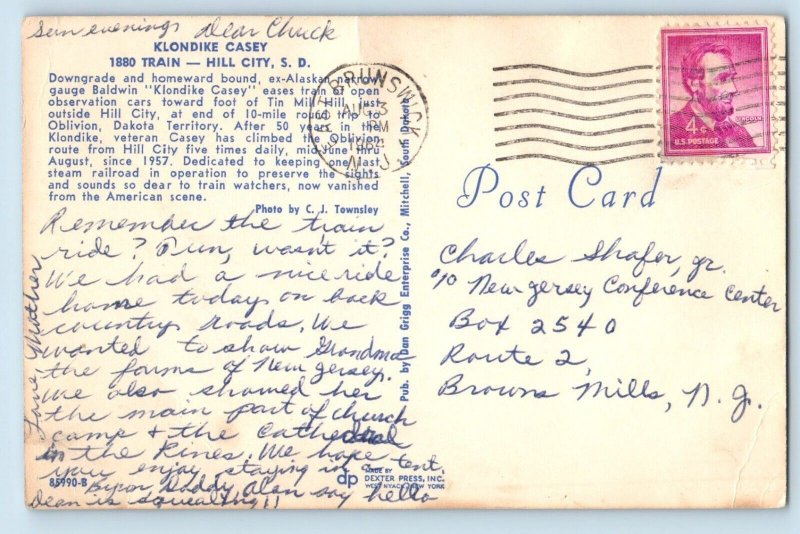 Sun evening Dear Chuck
KLONDIKE CASEY
1880 TRAIN — HILL CITY, S. D.
Downgrade and homeward bound, ex-Alaskan narrow
gauge Baldwin "Klondike Casey" eases train of open
observation cars toward foot of Tin Mill Hill just
outside Hill City, at end of 10-mile round trip to
Oblivion, Dakota Territory. After 50 years in the
Klondike, veteran Casey has climbed the Oblivion
route from Hill City five times daily, mid-June thru
August, since 1957. Dedicated to keeping one last
steam railroad in operation to preserve the sights
and sounds so dear to train watchers, now vanished
from the American scene.
Photo by C. J. Townsley
Remember the train
ride? Fun, wasn't it?
We had a nice ride
home today on back
country roads. We
wanted to show Grandma
the farms of New Jersey.
We also showed her
the main part of church
camp & the Cathedral
in the Pines. We hope
you enjoy staying in a tent.
Byron Daddy Alan say hello
Dean is squealing!!
Love, Mother
85990-B
Pub. by Dan Grigg Enterprise Co., Mitchell, South Dakota
dp
MADE BY
DEXTER PRESS, INC.
WEST NYACK, NEW YORK
BRUNSWICK
PM
N.J.
4¢
LINCOLN
U.S. POSTAGE
Post Card
Charles Shafer, Jr.
c/o New Jersey Conference Center
Box 2540
Route 2,
Browns Mills, N. J.